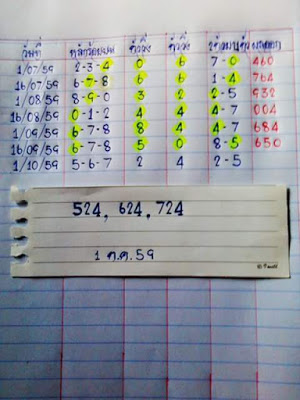 วันที่ หลักร้อยบน ตัววิ่ง ตัววิ่ง
1/07/59 2-3-4 0 6 7-0 460
16/07/59 6-7-8 6 6 1-4 764
1/08/59 8-9-0 3 2 2-5 932
16/08/59 0-1-2 4 4 4-7 004
1/09/59 6-7-8 8 4 4-7 684
16/09/59 6-7-8 5 0 8-5 650
1/10/59 5-6-7 2 4 2-5
524, 624, 724
1 ต.ค. 59